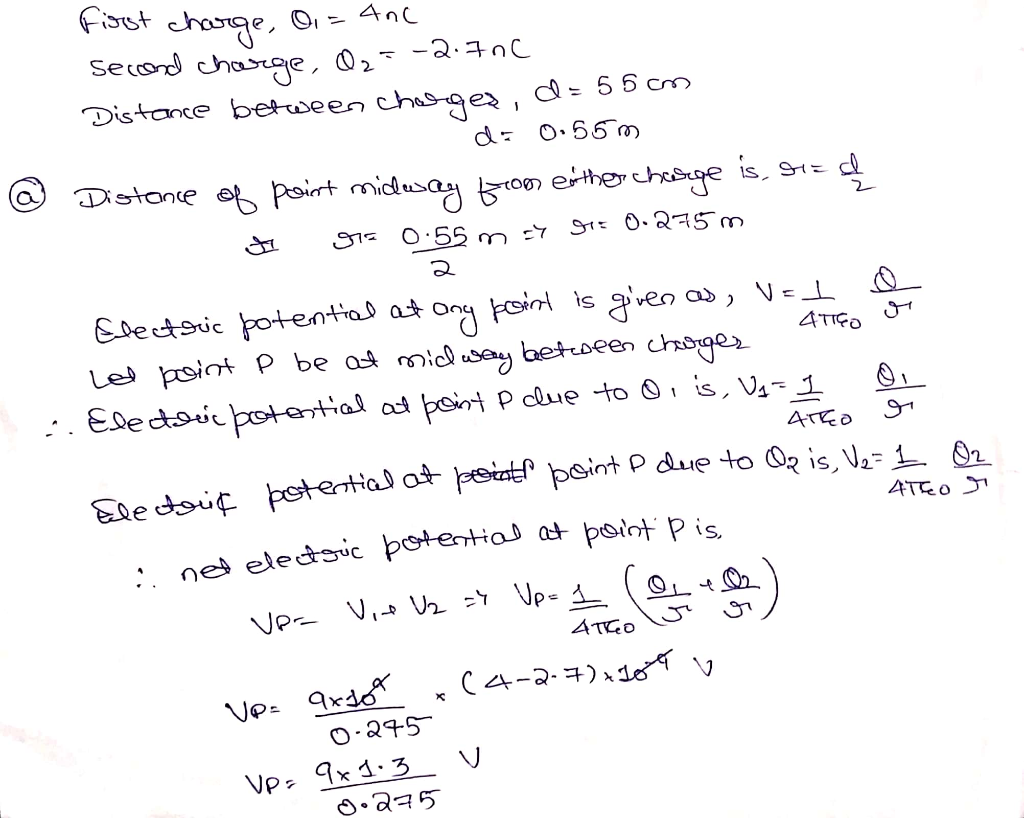 First charge, Q1 = 4nC
Second charge, Q2 = -2.7nC
Distance between charges, d = 55 cm
d = 0.55 m
(a) Distance of point midway from either charge is, r = d/2
r = 0.55/2 m => r = 0.275 m
Electric potential at any point is given as, V = 1/4πε0 Q/r
Let point P be at midway between charges
∴ Electric potential at point P due to Q1 is, V1 = 1/4πε0 Q1/r
Electric potential at point P due to Q2 is, V2 = 1/4πε0 Q2/r
∴ net electric potential at point P is,
VP = V1 + V2 => VP = 1/4πε0 (Q1/r + Q2/r)
VP = 9x10^9/0.275 x (4-2.7) x 10^-9 V
VP = 9x1.3/0.275 V